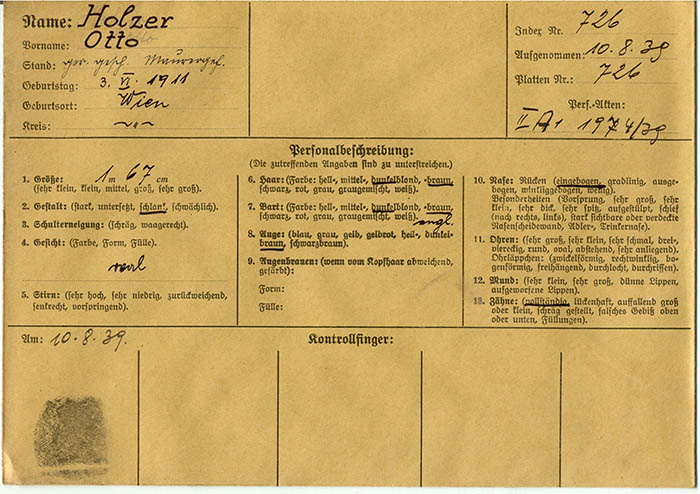 Name: Holzer
Vorname: Otto
Stand: ger. gesch. Maurergeh.
Geburtstag: 3. VI. 1911
Geburtsort: Wien
Kreis: -„-
Index Nr. 726
Aufgenommen: 10. 8. 39
Platten Nr.: 726
Pers.-Akten:
II A1 1974/39
Personalbeschreibung:
(Die zutreffenden Angaben sind zu unterstreichen.)
1. Größe: 1 m 67 cm
(sehr klein, klein, mittel, groß, sehr groß).
2. Gestalt: (stark, untersetzt, schlank, schwächlich).
3. Schulterneigung: (schräg, waagerecht).
4. Gesicht: (Farbe, Form, Fülle).
oval
5. Stirn: (sehr hoch, sehr niedrig, zurückweichend,
senkrecht, vorspringend).
6. Haar: (Farbe: hell-, mittel-, dunkelblond, -braun,
schwarz, rot, grau, graugemischt, weiß).
7. Bart: (Farbe: hell-, mittel-, dunkelblond, -braun,
schwarz, rot, grau, graugemischt, weiß).
8. Auge: (blau, grau, gelb, gelbrot, hell-, dunkel-
braun, schwarzbraun).
9. Augenbrauen: (wenn vom Kopfhaar abweichend,
gefärbt):
Form:
Fülle:
10. Nase: Rücken (eingebogen, gradlinig, ausge-
bogen, winkliggebogen, wellig).
Besonderheiten (Vorsprung, sehr groß, sehr
klein, sehr dick, sehr spitz, aufgestülpt, schief
(nach rechts, links), stark sichtbare oder verdeckte
Nasenscheidewand, Adler-, Trinkernase).
11. Ohren: (sehr groß, sehr klein, sehr schmal, drei-
viereckig, rund, oval, abstehend, sehr anliegend).
Ohrläppchen: (zwickelförmig, rechtwinklig, bo-
genförmig, freihängend, durchlocht, durchrissen).
12. Mund: (sehr klein, sehr groß, dünne Lippen,
aufgeworfene Lippen).
13. Zähne: (vollständig, lückenhaft, auffallend groß
oder klein, schräg gestellt, falsches Gebiß oben
oder unten, Füllungen).
Am: 10. 8. 39.
Kontrollfinger: